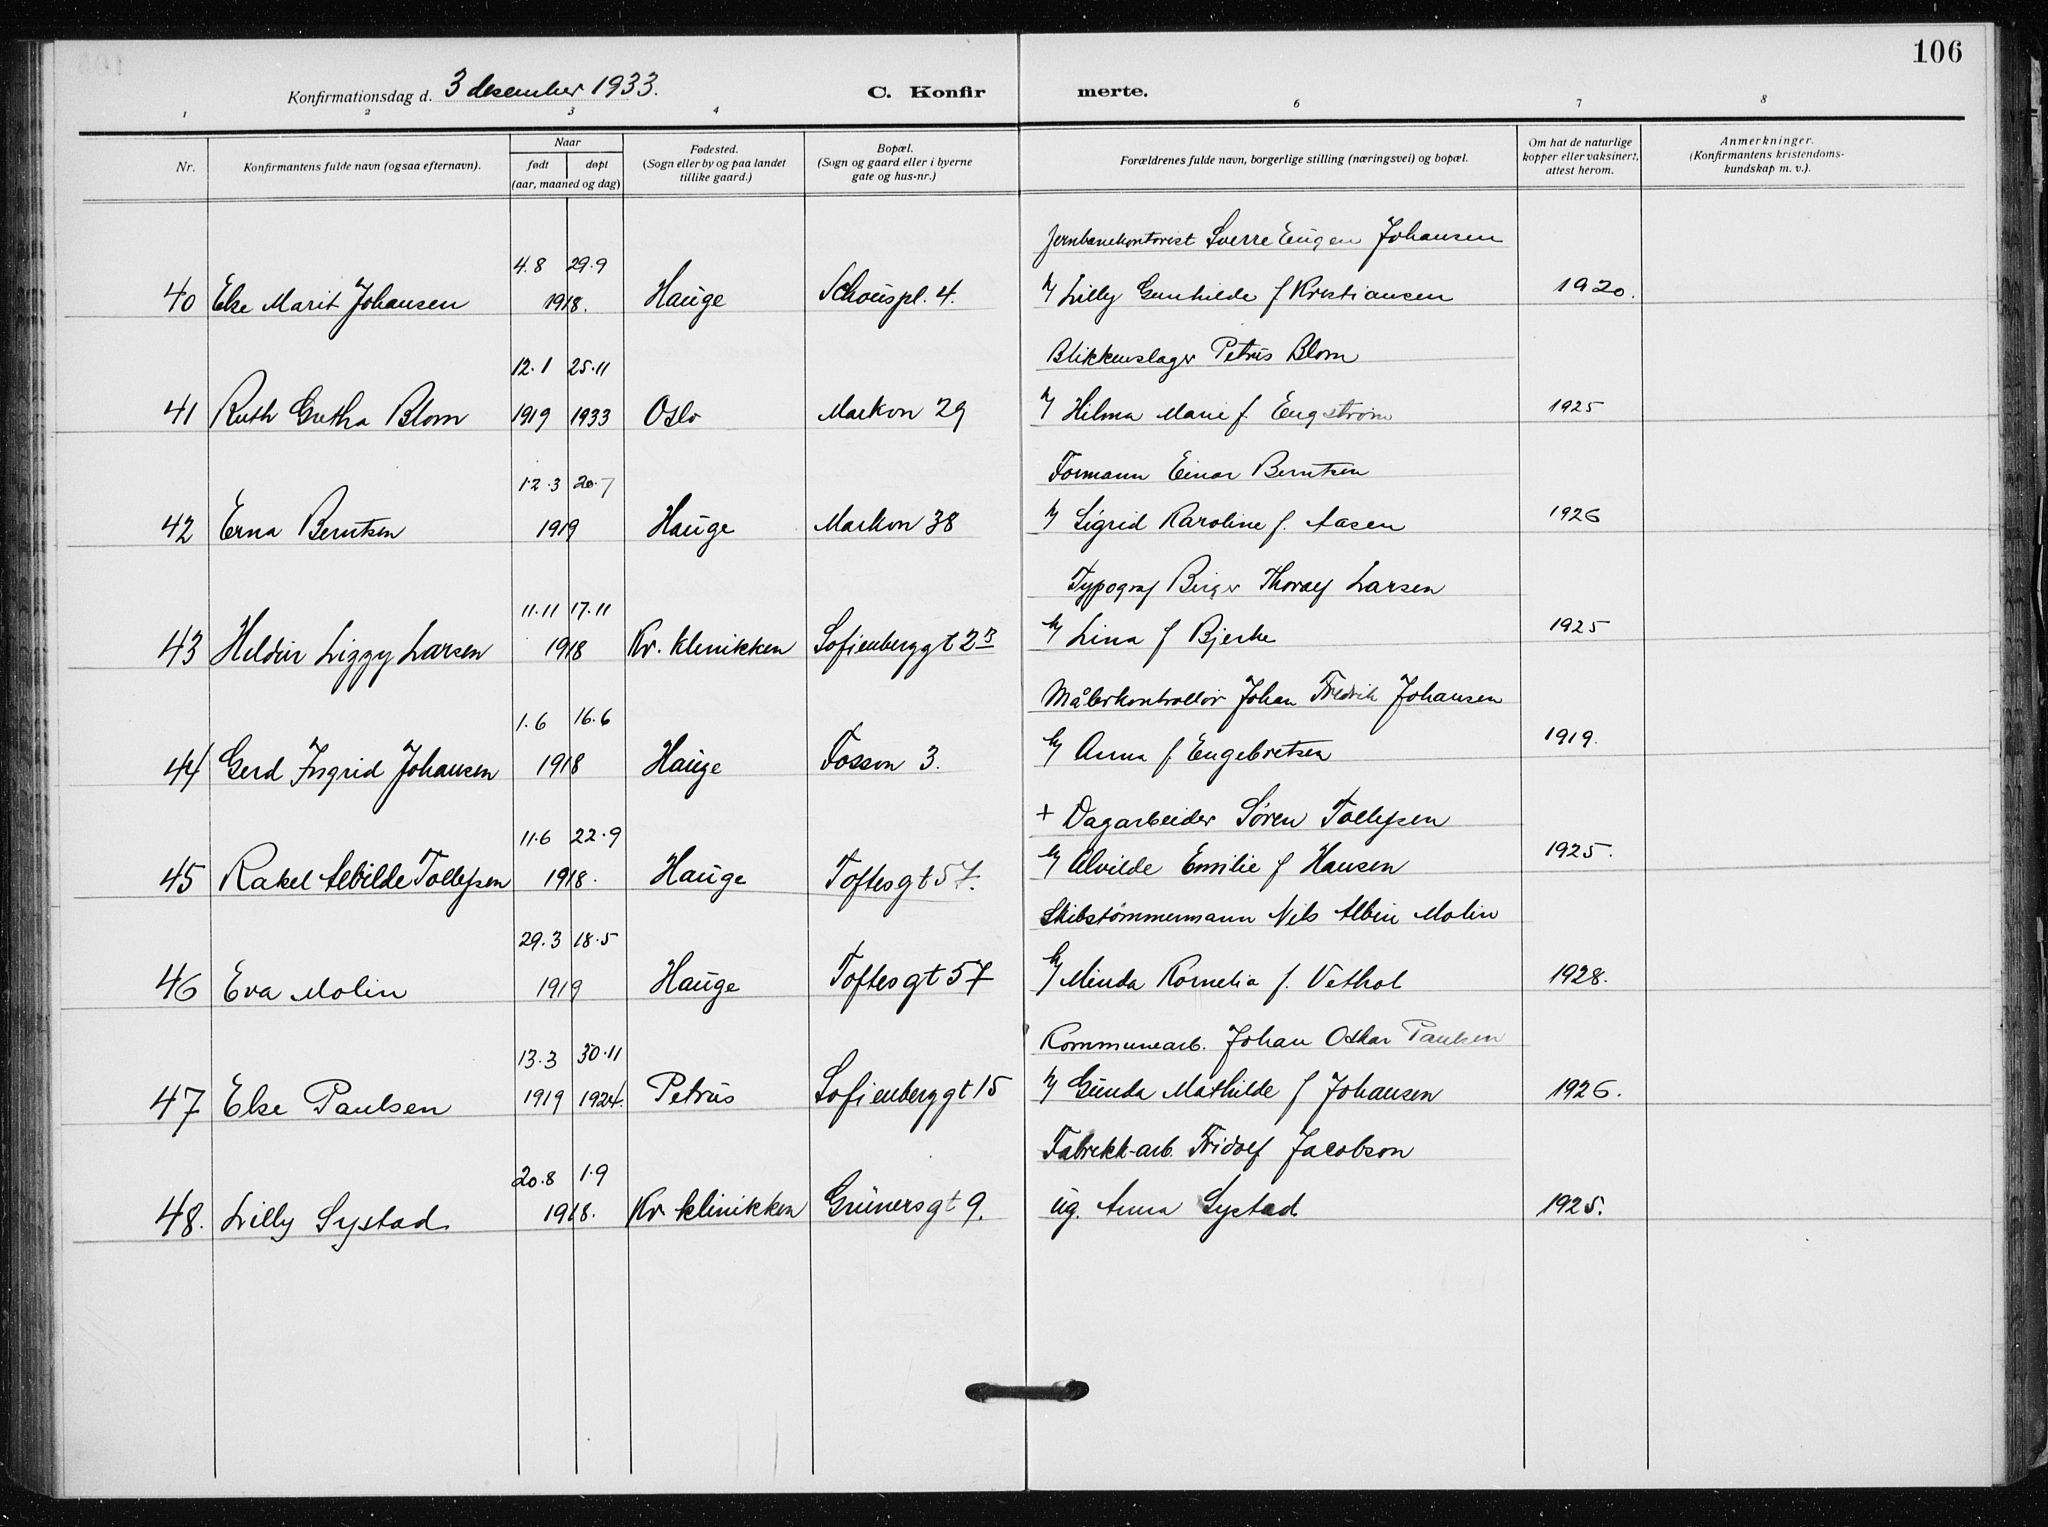 106
Konfirmationsdag d. 3 desember 1933. C. Konfir merte.
1 2 3 4 6 7 8
Nr. Konfirmantens fulde navn (ogsaa efternavn). Naar født døpt (aar, maaned og dag) Fødested. (Sogn eller by og paa landet tillike gaard.) Bopæl. (Sogn og gaard eller i byerne gate og hus-nr.) Forældrenes fulde navn, borgerlige stilling (næringsvei) og bopæl. Om hat de naturlige kopper eller vaksinert, attest herom. Anmerkninger. (Konfirmantens kristendoms-kundskap m. v.).
Jernbanekontorist Sverre Eugen Johansen
4.8 29.9
40 Else Marit Johansen 1918. Hauge Schouspl. 4. Lilly Gunhilde f Kristiansen 1920.
Blikkenslager Petrus Blom
12.1 25.11
41 Ruth Gretha Blom 1919 1933 Oslo Markvn 29 Hilma Marie f. Engstrøm 1925
Formann Einar Berntsen
12.3 20.7
42 Erna Berntsen 1919 Hauge Markvn 38 Sigrid Karoline f. Aasen 1926
Typograf Birger Thoralf Larsen
11.11 17.11
43 Hildur Liggy Larsen 1918 Kv. klinikken Sofienberggt 2 Lina f Bjerke 1925
Målerkontrollør Johan Fredrik Johansen
1.6 16.6
44 Gerd Ingrid Johansen 1918 Hauge Fossvn 3. Anna f. Engebretsen 1919.
+ Dagarbeider Søren Tollefsen
11.6 22.9
45 Rakel Alvilde Tollefsen 1918. Hauge Toftesgt 57. Alvilde Emilie f Hansen 1925.
Skibstømmermann Nils Albin Molin
29.3 18.5
46 Eva Molin 1919 Hauge Toftesgt 57 Minda Kornelia f. Vethol 1928.
Kommunearb. Johan Oskar Paulsen
13.3 30.11
47 Else Paulsen 1919 1924. Petrus Sofienberggt 15 Gunda Mathilde f Johansen 1926.
Fabrikk-arb. Fridolf Jacobson
20.8 1.9
48. Lilly Systad 1918. Kv klinikken Grünersgt 9. ug. Anna Systad 1925.